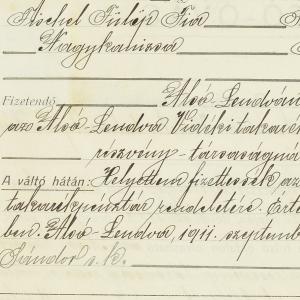 Fischel Fülöp Fia
Nagykanizsa
Fizetendő Alsó-Lendván
az Alsó-Lendva Vidéki takaré
részvény-társaságná
A váltó hátán: Helyettem fizettessék az
takarékpénztár rendeletére. Érté
ben. Alsó-Lendva, 1911. szeptemb
Sándor s. k.